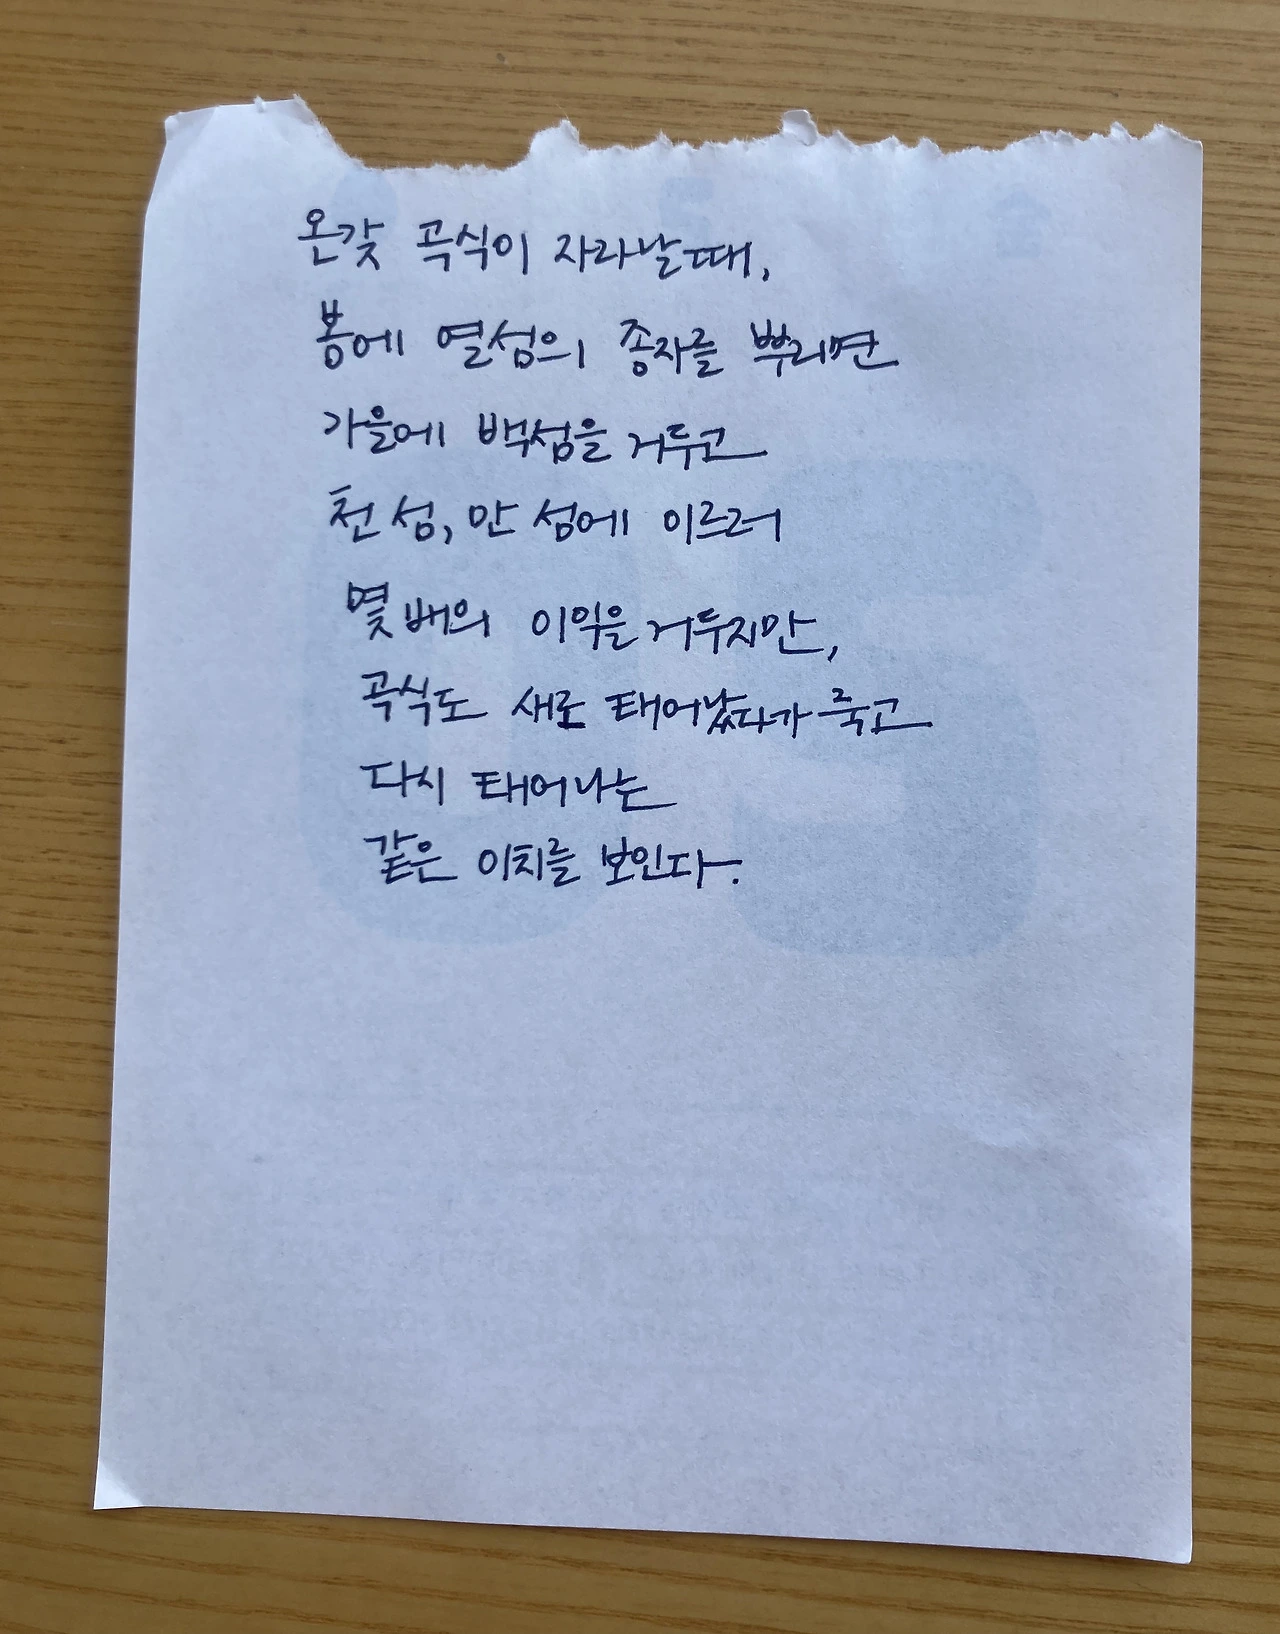 온갖 곡식이 자라날때,
봄에 열섬의 종자를 뿌리면
가을에 백섬을 거두고
천 섬, 만 섬에 이르러
몇 배의 이익을 거두지만,
곡식도 새로 태어났다가 죽고
다시 태어나는
같은 이치를 보인다.